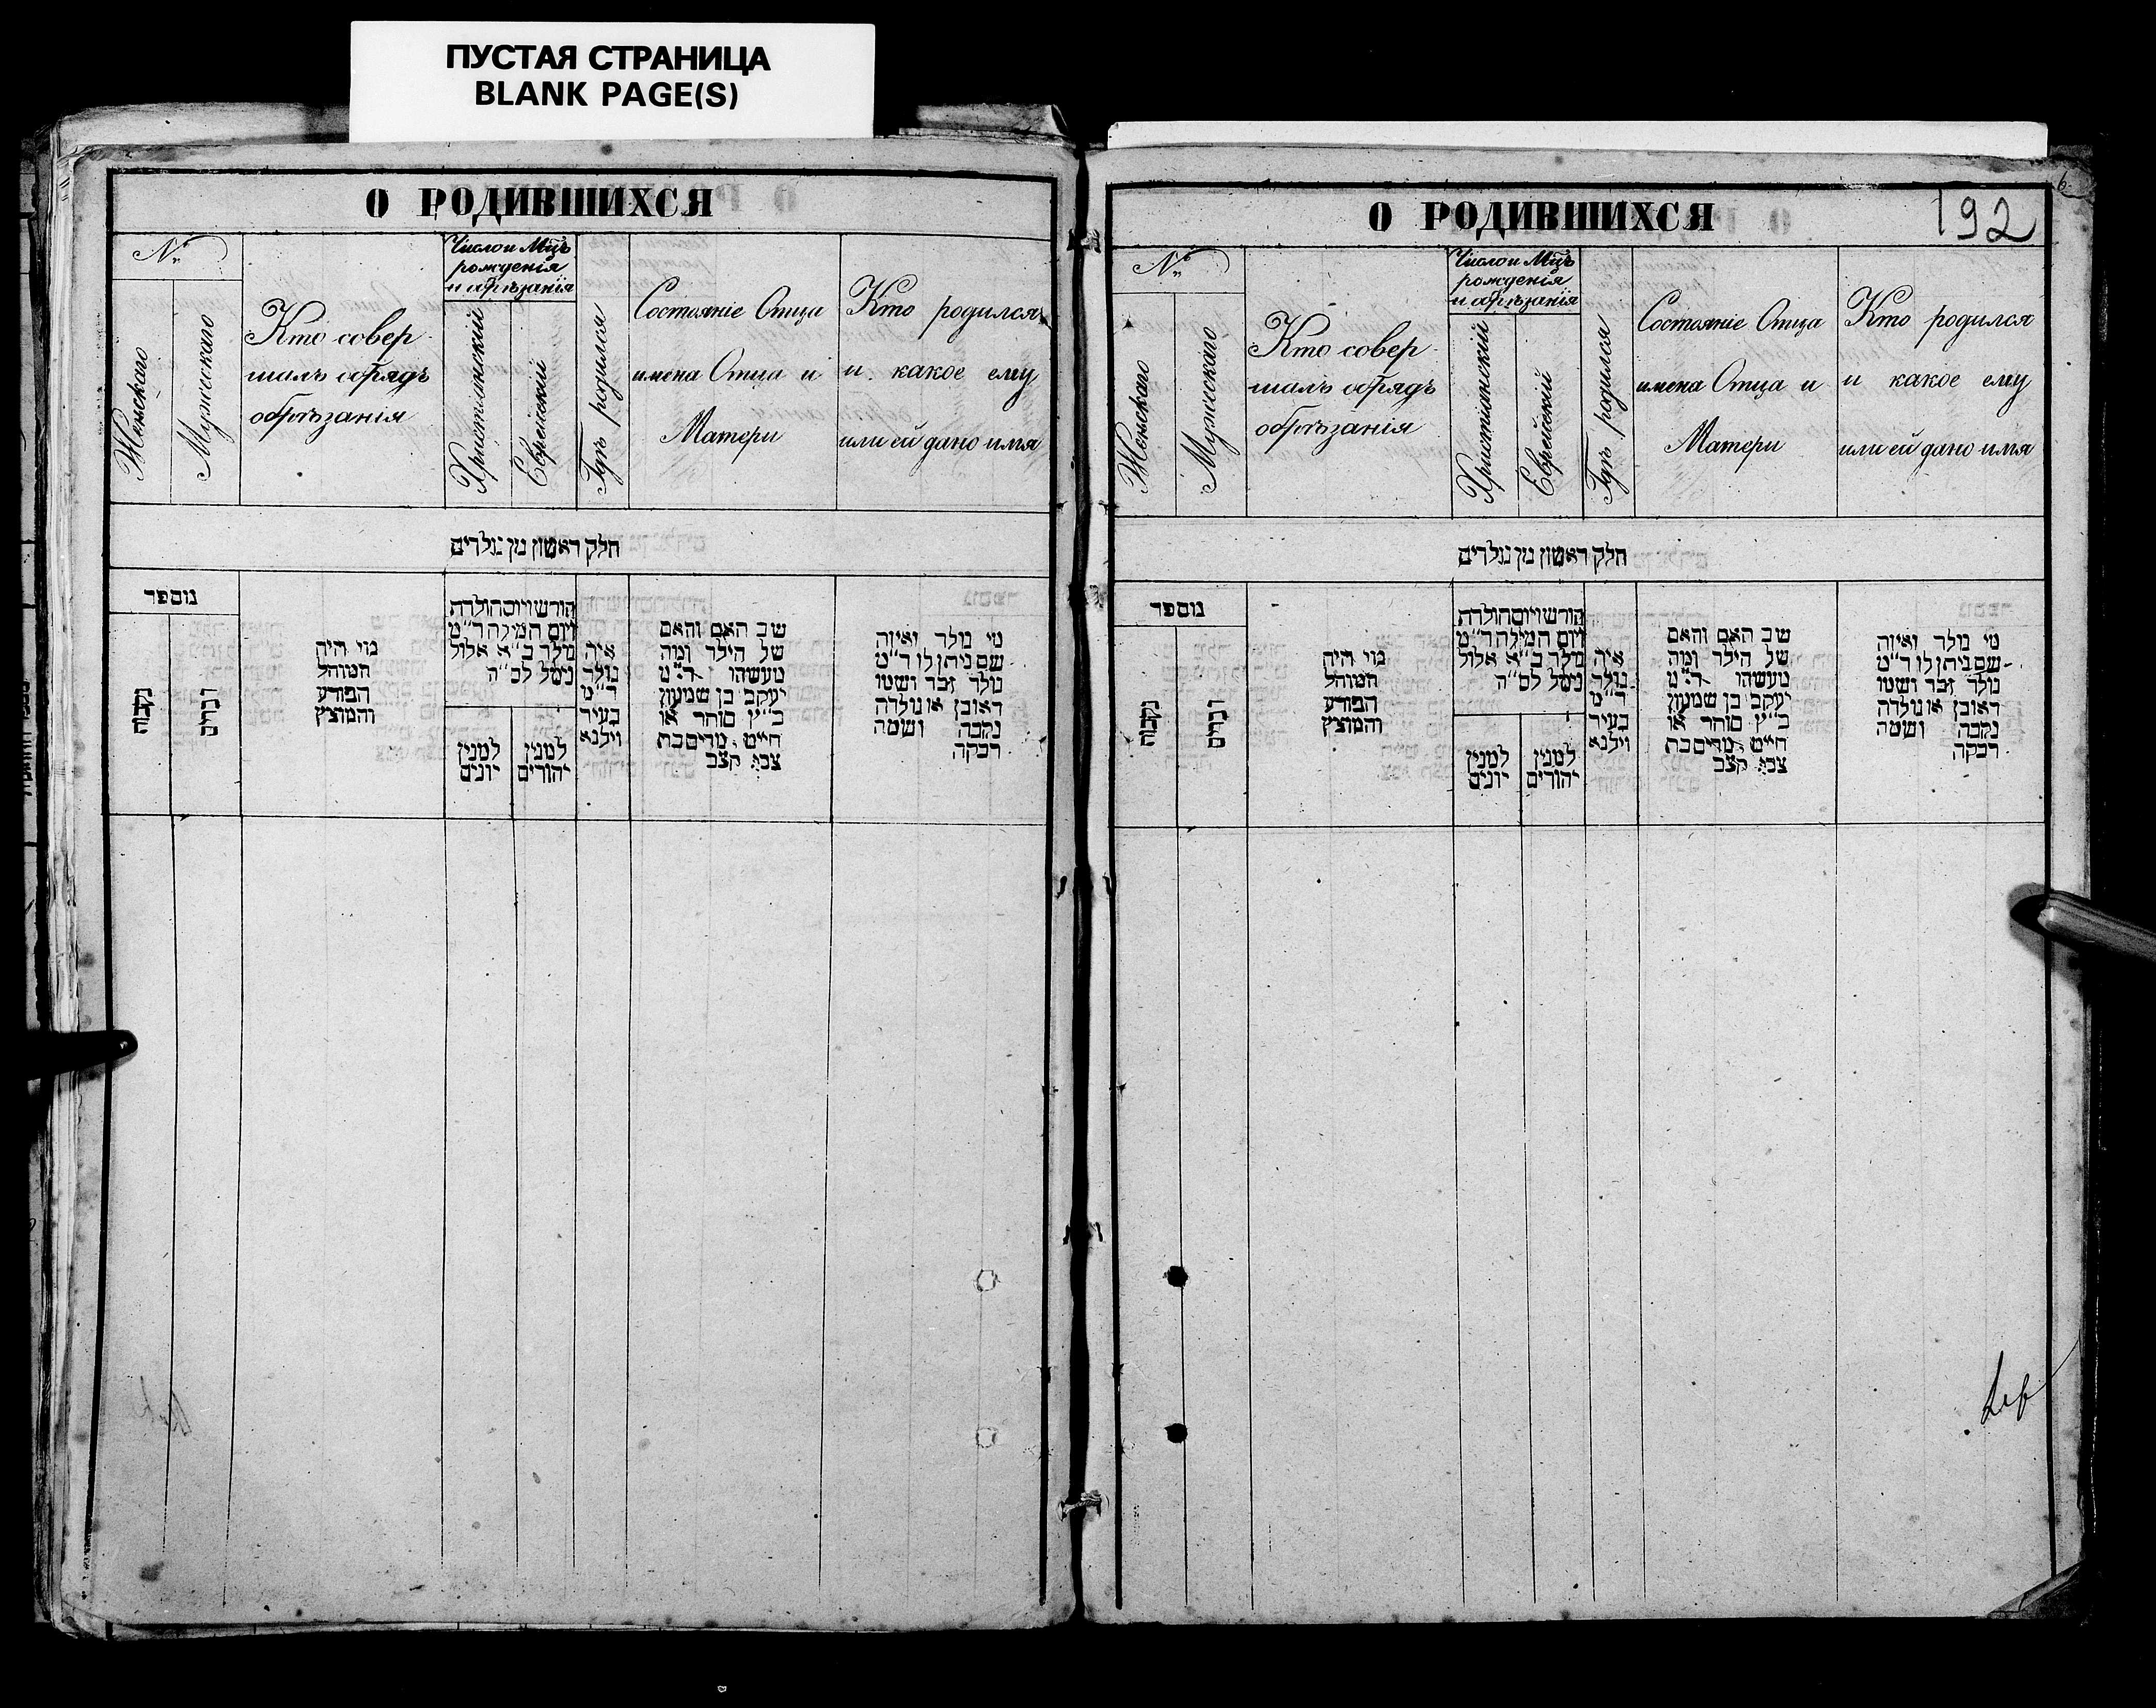 ПУСТАЯ СТРАНИЦА
BLANK PAGE(S)
О РОДИВШИХСЯ
№
Женскаго
Мужескаго
Кто совер
шалъ обрядъ
обрѣзанія
Число и Мцъ
рожденія
и обрѣзанія
Христіянскій
Еврейскій
Гдѣ родился
Состояніе Отца
имена Отца и
Матери
Кто родился
и какое ему
или ей дано имя
חלק ראשון מן נולדים
מספר
נקבות
זכרים
מי היה
המוהל
הפורע
והמוצץ
חודש ויום הולדת
ויום המילה ד״מ
נולד כ״א אלול
נימל לס״ה
למנין
יונים
למנין
יהודים
איה
נולד
ד״מ
בעיר
וילנא
שב האם והאם
של הילד ומה
מעשהו ד״מ
יעקב בן שמעון
כ״ץ סוחר או
חייט מרים בת
צבי קצב
מי נולד ואיזה
שם ניתן לו ד״מ
נולד זכר ושמו
ראובן או נולדה
נקבה ושמה
רבקה
О РОДИВШИХСЯ
192
№
Женскаго
Мужескаго
Кто совер
шалъ обрядъ
обрѣзанія
Число и Мцъ
рожденія
и обрѣзанія
Христіянскій
Еврейскій
Гдѣ родился
Состояніе Отца
имена Отца и
Матери
Кто родился
и какое ему
или ей дано имя
חלק ראשון מן נולדים
מספר
נקבות
זכרים
מי היה
המוהל
הפורע
והמוצץ
חודש ויום הולדת
ויום המילה ד״מ
נולד כ״א אלול
נימל לס״ה
למנין
יונים
למנין
יהודים
איה
נולד
ד״מ
בעיר
וילנא
שב האם והאם
של הילד ומה
מעשהו ד״מ
יעקב בן שמעון
כ״ץ סוחר או
חייט מרים בת
צבי קצב
מי נולד ואיזה
שם ניתן לו ד״מ
נולד זכר ושמו
ראובן או נולדה
נקבה ושמה
רבקה